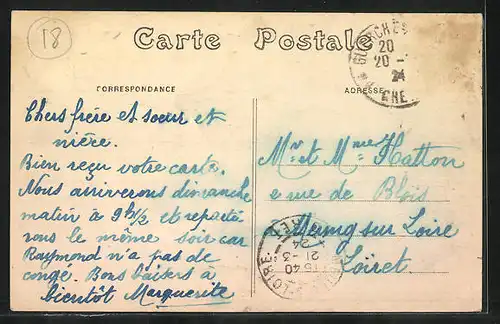 18
Carte Postale
CORRESPONDANCE
ADRESSE
Chers frère et sœur et
nièce.
Bien reçu votre carte.
Nous arriverons dimanche
matin à 9h1/2 et reparti
rons le même soir car
Raymond n'a pas de
congé. Bons baisers à
bientôt Marguerite
Mr et Mme Hatton
rue de Blois
Meung sur Loire
Loiret.
20
20 -
24
CHER
15 40
21-3
24
LOIRET